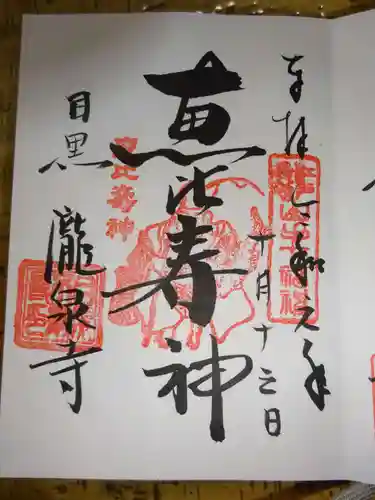 奉拝 令和元年
十月十三日
恵比寿神
恵比寿神
目黒 瀧泉寺